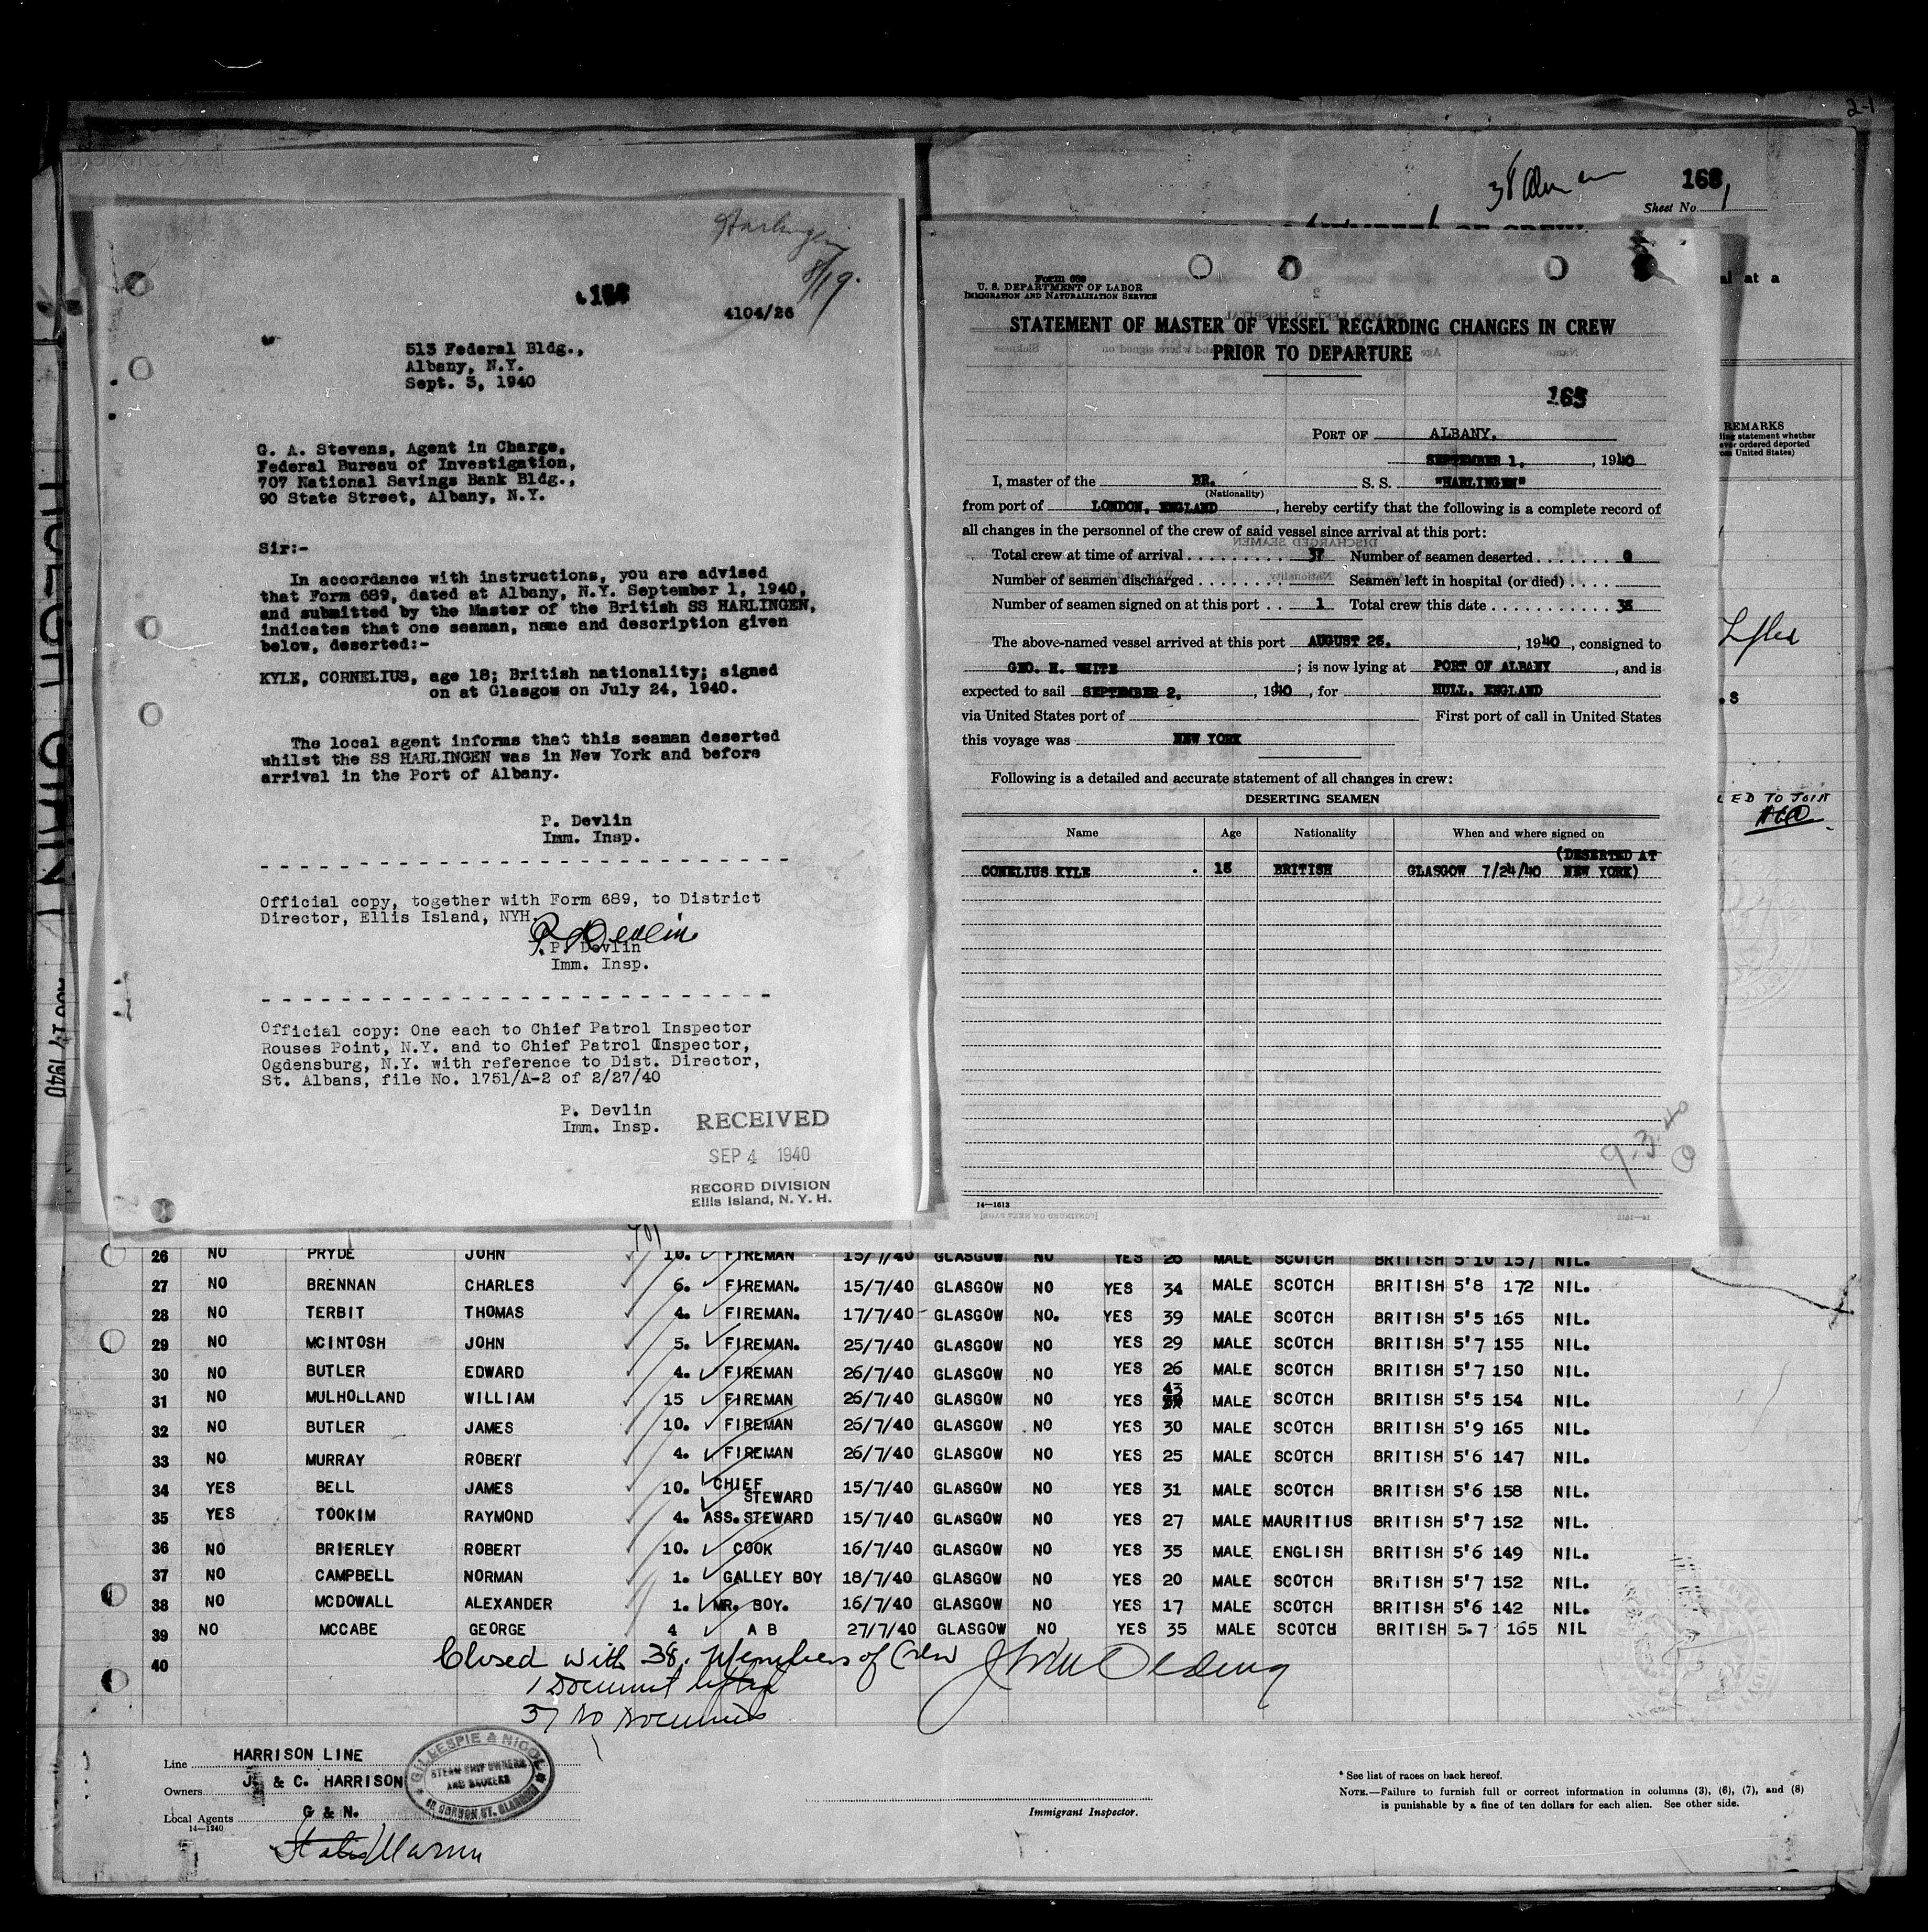 2-1
168
Sheet No. 1
Harlingen
8/19.
4104/26
513 Federal Bldg.,
Albany, N.Y.
Sept. 3, 1940
G. A. Stevens, Agent in Charge,
Federal Bureau of Investigation,
707 National Savings Bank Bldg.,
90 State Street, Albany, N.Y.
Sir:-
In accordance with instructions, you are advised
that Form 689, dated at Albany, N.Y. September 1, 1940,
and submitted by the Master of the British SS HARLINGEN,
indicates that one seaman, name and description given
below, deserted:-
KYLE, CORNELIUS, age 18; British nationality; signed
on at Glasgow on July 24, 1940.
The local agent informs that this seaman deserted
whilst the SS HARLINGEN was in New York and before
arrival in the Port of Albany.
P. Devlin
Imm. Insp.
Official copy, together with Form 689, to District
Director, Ellis Island, NYH.
P. Devlin
P. Devlin
Imm. Insp.
Official copy: One each to Chief Patrol Inspector
Rouses Point, N.Y. and to Chief Patrol Inspector,
Ogdensburg, N.Y. with reference to Dist. Director,
St. Albans, file No. 1751/A-2 of 2/27/40
P. Devlin
Imm. Insp.
RECEIVED
SEP 4 1940
RECORD DIVISION
Ellis Island, N. Y. H.
Form 689
U. S. DEPARTMENT OF LABOR
IMMIGRATION AND NATURALIZATION SERVICE
STATEMENT OF MASTER OF VESSEL REGARDING CHANGES IN CREW
PRIOR TO DEPARTURE
163
PORT OF ALBANY.
SEPTEMBER 1. , 1940
I, master of the BR. S. S. "HARLINGEN"
(Nationality)
from port of LONDON, ENGLAND , hereby certify that the following is a complete record of
all changes in the personnel of the crew of said vessel since arrival at this port:
Total crew at time of arrival 37 Number of seamen deserted 0
Number of seamen discharged Seamen left in hospital (or died)
Number of seamen signed on at this port 1 Total crew this date 38
The above-named vessel arrived at this port AUGUST 28. , 1940 , consigned to
GEO. H. WHITE ; is now lying at PORT OF ALBANY , and is
expected to sail SEPTEMBER 2. , 1940 , for HULL, ENGLAND
via United States port of First port of call in United States
this voyage was NEW YORK
Following is a detailed and accurate statement of all changes in crew:
DESERTING SEAMEN
Name Age Nationality When and where signed on
CONELIUS KYLE . 18 BRITISH GLASGOW 7/24/40 (DESERTED AT
NEW YORK)
14—1612
REMARKS
ever ordered deported
United States)
ED TO JOIN
26 NO PRYDE JOHN 10. FIREMAN 15/7/40 GLASGOW NO YES 26 MALE SCOTCH BRITISH 5'10 157 NIL.
27 NO BRENNAN CHARLES 6. FIREMAN. 15/7/40 GLASGOW NO YES 34 MALE SCOTCH BRITISH 5'8 172 NIL.
28 NO TERBIT THOMAS 4. FIREMAN. 17/7/40 GLASGOW NO. YES 39 MALE SCOTCH BRITISH 5'5 165 NIL.
29 NO MCINTOSH JOHN 5. FIREMAN. 25/7/40 GLASGOW NO YES 29 MALE SCOTCH BRITISH 5'7 155 NIL.
30 NO BUTLER EDWARD 4. FIREMAN 26/7/40 GLASGOW NO YES 26 MALE SCOTCH BRITISH 5'7 150 NIL.
31 NO MULHOLLAND WILLIAM 15 FIREMAN 26/7/40 GLASGOW NO YES 43 MALE SCOTCH BRITISH 5'5 154 NIL.
32 NO BUTLER JAMES 10. FIREMAN 26/7/40 GLASGOW NO YES 30 MALE SCOTCH BRITISH 5'9 165 NIL.
33 NO MURRAY ROBERT 4. FIREMAN 26/7/40 GLASGOW NO YES 25 MALE SCOTCH BRITISH 5'6 147 NIL.
34 YES BELL JAMES 10. CHIEF STEWARD 15/7/40 GLASGOW NO YES 31 MALE SCOTCH BRITISH 5'6 158 NIL.
35 YES TOOKIM RAYMOND 4. ASS. STEWARD 15/7/40 GLASGOW NO YES 27 MALE MAURITIUS BRITISH 5'7 152 NIL.
36 NO BRIERLEY ROBERT 10. COOK 16/7/40 GLASGOW NO YES 35 MALE ENGLISH BRITISH 5'6 149 NIL.
37 NO CAMPBELL NORMAN 1. GALLEY BOY 18/7/40 GLASGOW NO YES 20 MALE SCOTCH BRITISH 5'7 152 NIL.
38 NO MCDOWALL ALEXANDER 1. MR. BOY. 16/7/40 GLASGOW NO YES 17 MALE SCOTCH BRITISH 5'6 142 NIL.
39 NO MCCABE GEORGE 4 A B 27/7/40 GLASGOW NO YES 35 MALE SCOTCH BRITISH 5.7 165 NIL
40
Closed with 38. Members of Crew
1 Document lifted
37 No Documents
Line HARRISON LINE
Owners J. & C. HARRISON
Local Agents G & N.
14—1240
GILLESPIE & NICOL
STEAM SHIP OWNERS
AND BROKERS
GORDON ST. GLASGOW
Immigrant Inspector.
* See list of races on back hereof.
NOTE.—Failure to furnish full or correct information in columns (3), (6), (7), and (8)
is punishable by a fine of ten dollars for each alien. See other side.